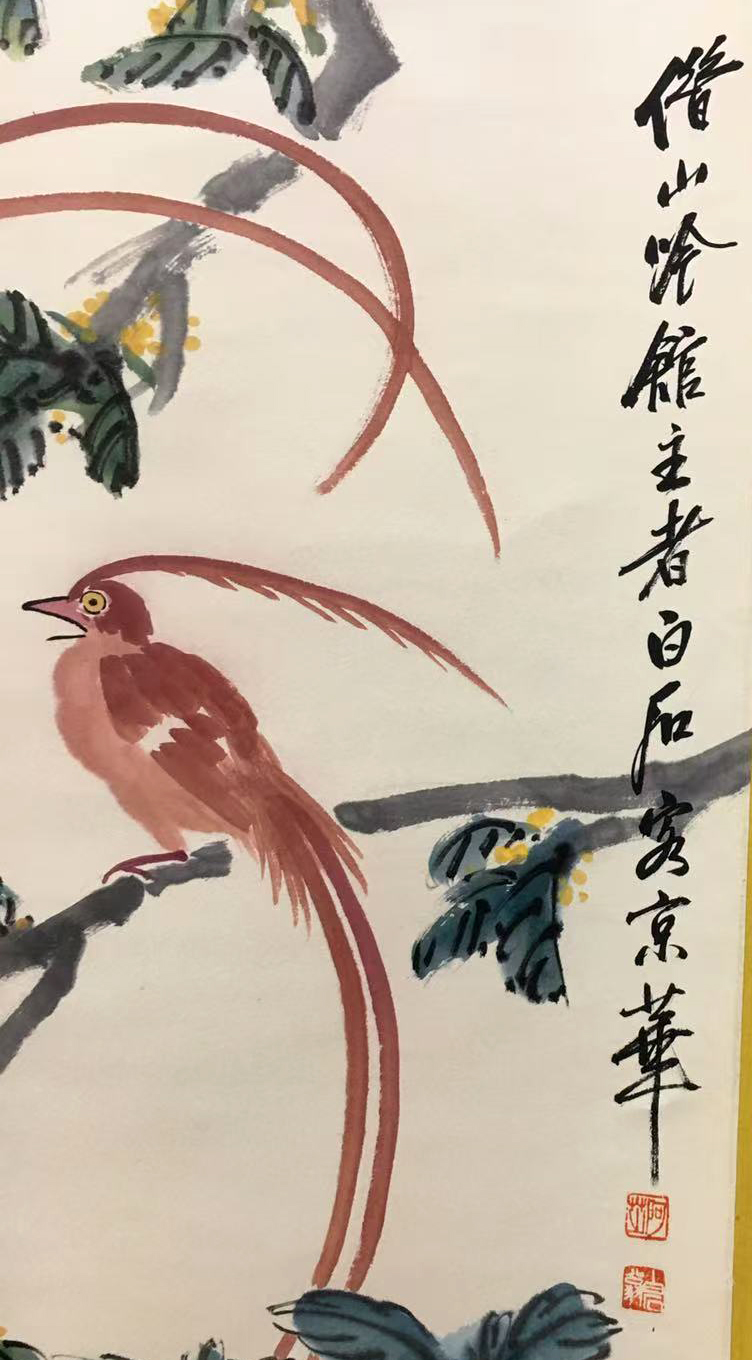 借山吟館主者白石客京華
阿芝